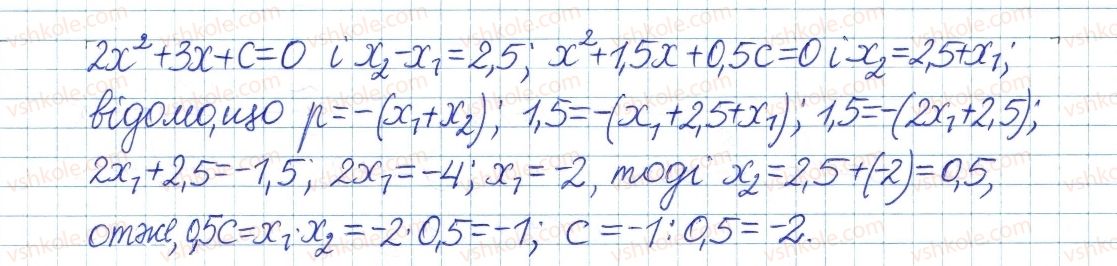 2x²+3x+c=0 і x₂-x₁=2,5; x²+1,5x+0,5c=0 і x₂=2,5+x₁;
відомо,що p=-(x₁+x₂); 1,5=-(x₁+2,5+x₁); 1,5=-(2x₁+2,5);
2x₁+2,5=-1,5; 2x₁=-4; x₁=-2, тоді x₂=2,5+(-2)=0,5,
отже, 0,5c=x₁·x₂=-2·0,5=-1; c=-1:0,5=-2.